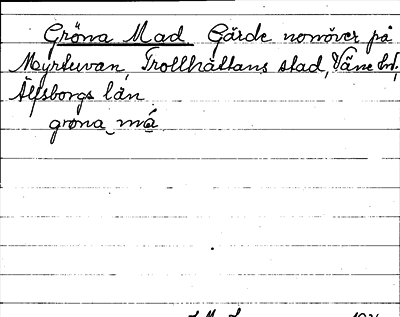 Gröna Mad Gärde norröver på
Myrtuvan, Trollhättans stad, Väne hd,
Älfsborgs län
grona må